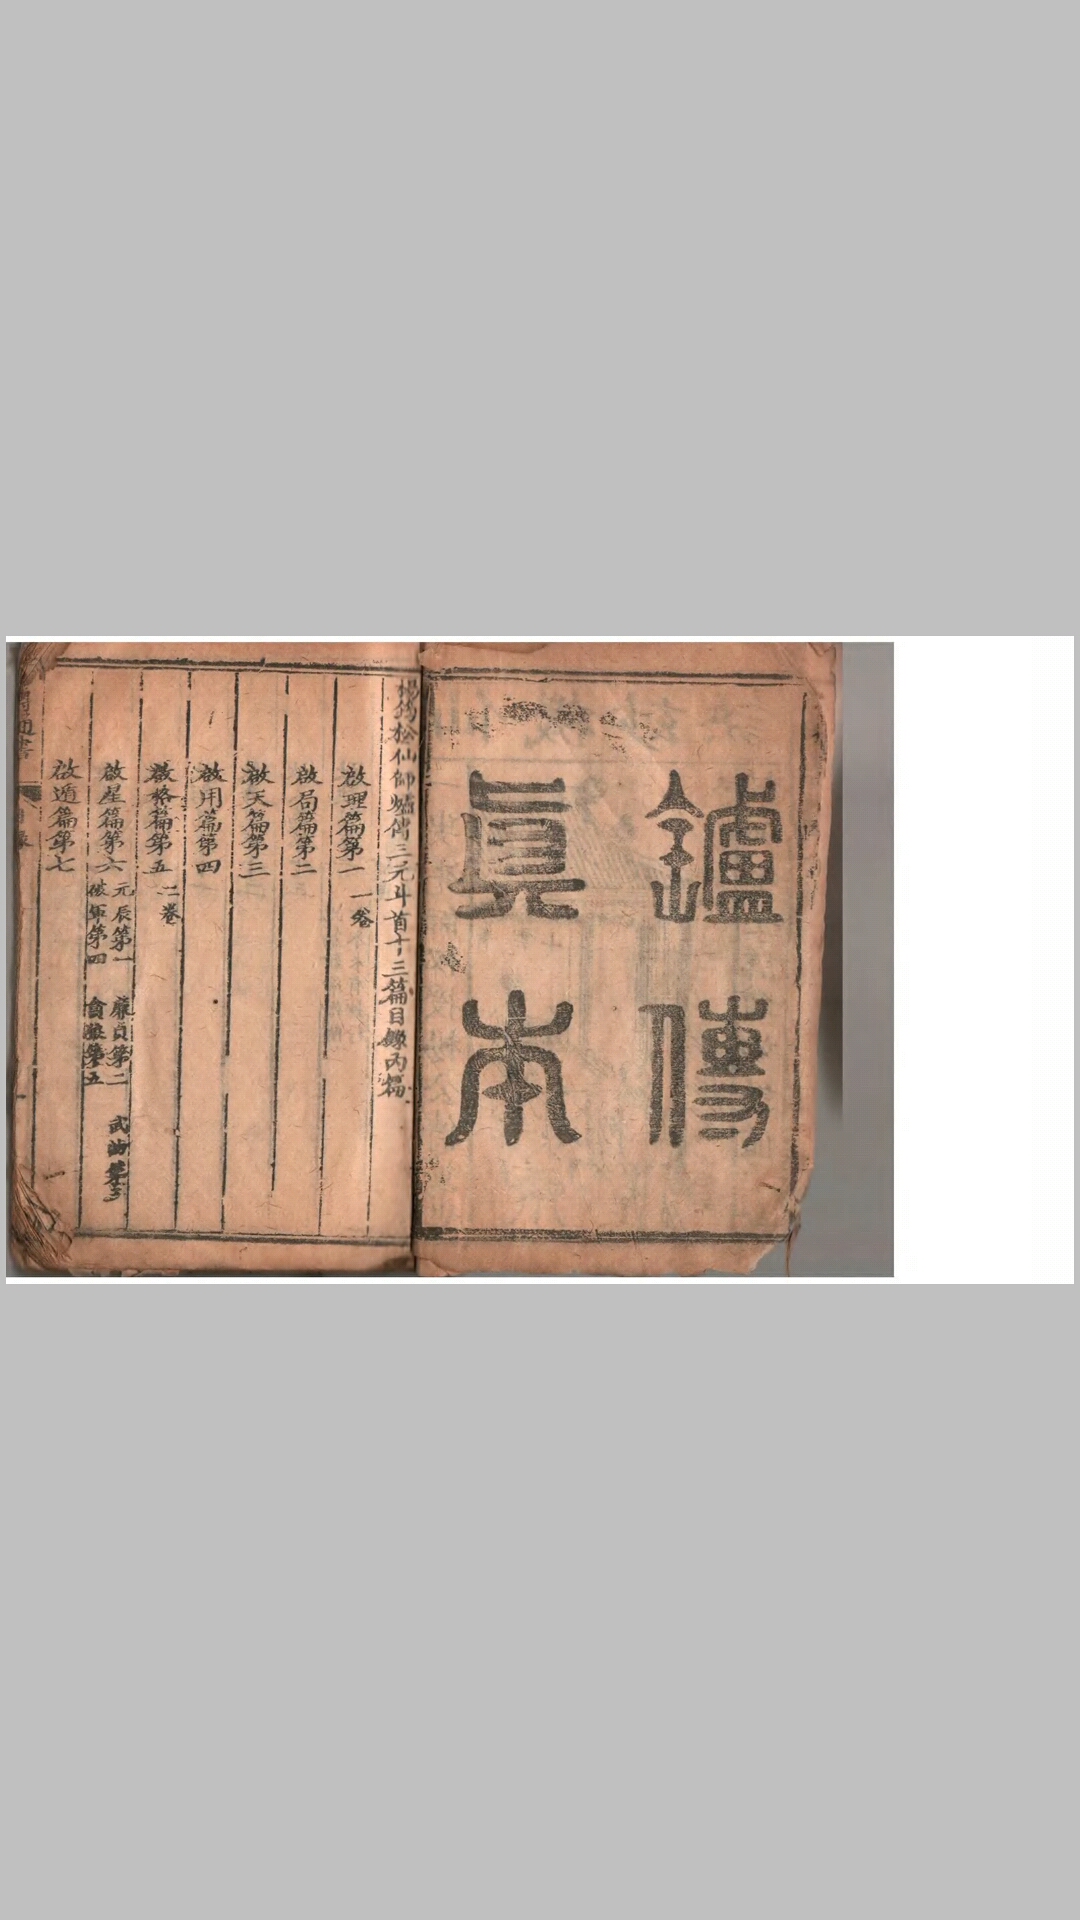 鑪傳
真本
楊筠松仙師爐傳三元斗首十三篇目錄內篇
啟理篇第一 一卷
啟局篇第二
啟天篇第三
啟用篇第四
啟格篇第五 二卷
啟星篇第六 元辰第一 廉貞第二 武曲第三 破軍第四 貪狼第五
啟遁篇第七
通書
目錄